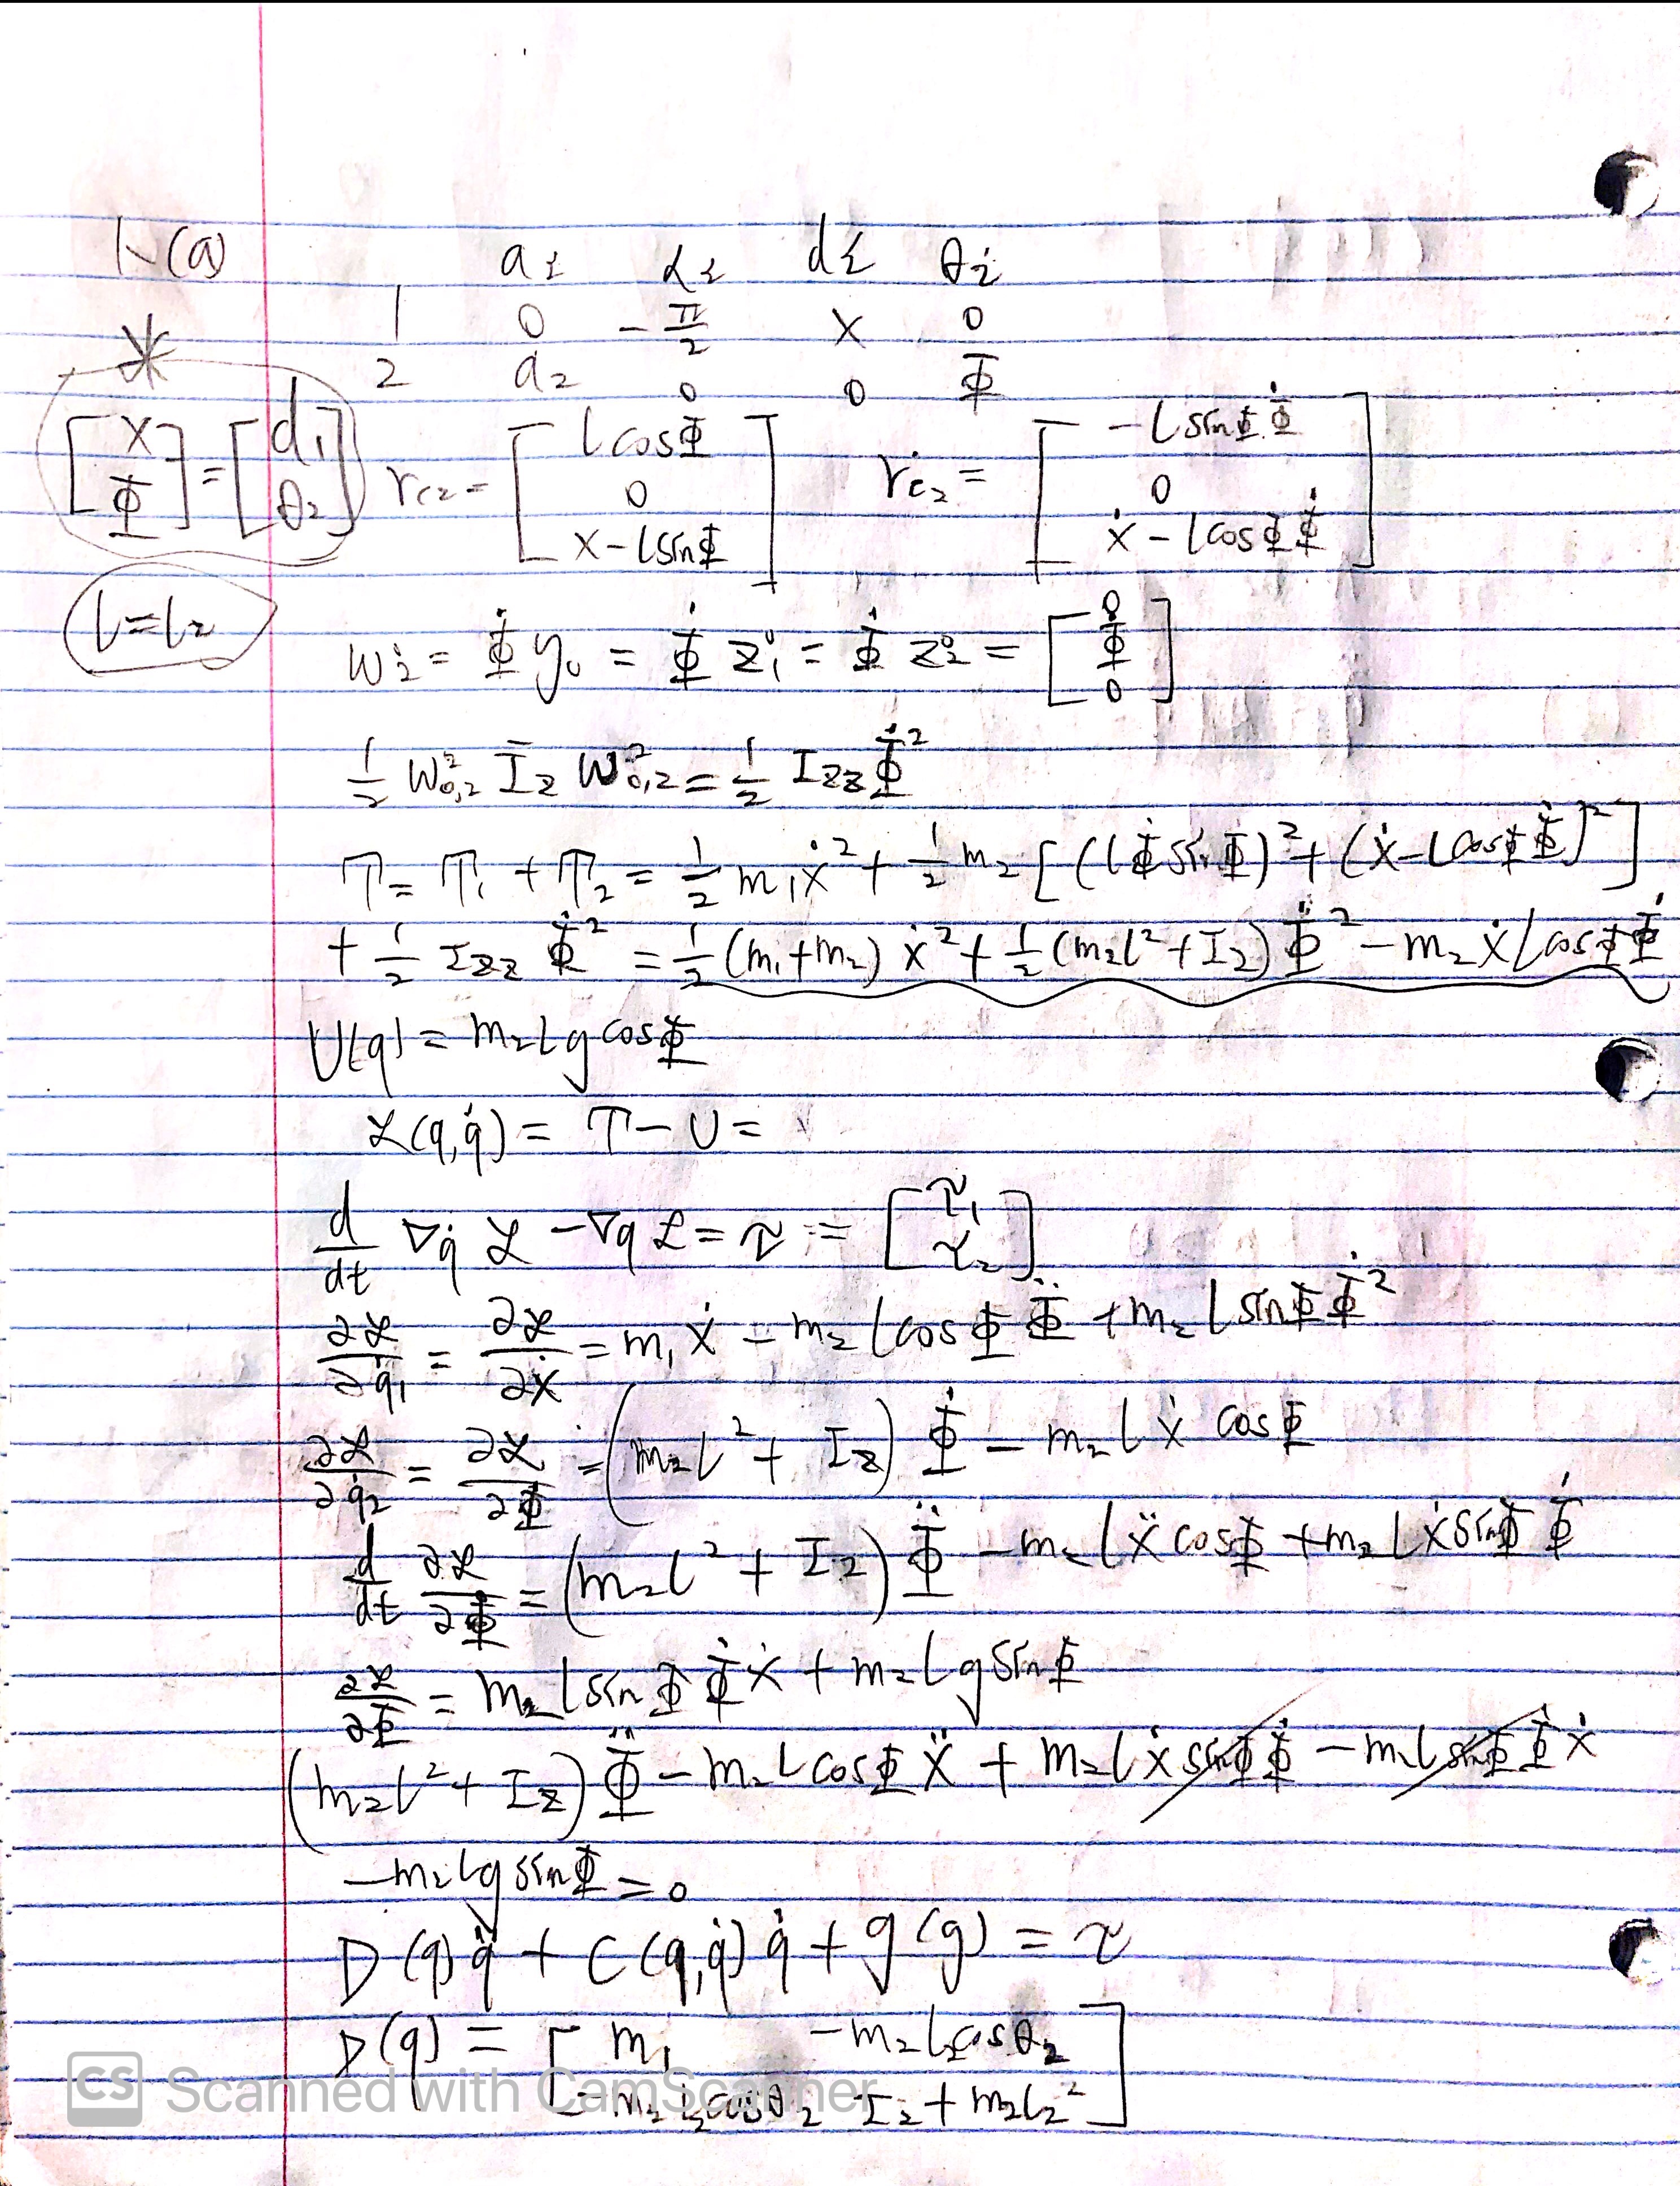 1. (a)
a_i α_i d_i θ_i
1 0 -π/2 x 0
2 a_2 0 0 Φ
*
[x; Φ] = [d_1; θ_2]
r_{c2} = [l cosΦ; 0; x - l sinΦ] ṙ_{c2} = [-l sinΦ Φ̇; 0; ẋ - l cosΦ Φ̇]
l = l_2
w_2^0 = Φ̇ y_0 = Φ̇ z_1^0 = Φ̇ z_2^0 = [0; Φ̇; 0]
1/2 w_{0,2}^2 I_2 w_{0,2}^2 = 1/2 I_{zz} Φ̇^2
T = T_1 + T_2 = 1/2 m_1 ẋ^2 + 1/2 m_2 [(l Φ̇ sinΦ)^2 + (ẋ - l cosΦ Φ̇)^2]
+ 1/2 I_{zz} Φ̇^2 = 1/2 (m_1 + m_2) ẋ^2 + 1/2 (m_2 l^2 + I_2) Φ̇^2 - m_2 ẋ l cosΦ Φ̇
U(q) = m_2 l g cosΦ
ℒ(q, q̇) = T - U =
d/dt ∇_q̇ ℒ - ∇_q ℒ = τ = [τ_1; τ_2]
∂ℒ/∂q̇_1 = ∂ℒ/∂ẋ = m_1 ẋ - m_2 l cosΦ Φ̈ + m_2 l sinΦ Φ̇^2
∂ℒ/∂q̇_2 = ∂ℒ/∂Φ̇ = (m_2 l^2 + I_z) Φ̇ - m_2 l ẋ cosΦ
d/dt ∂ℒ/∂Φ̇ = (m_2 l^2 + I_2) Φ̈ - m_2 l ẍ cosΦ + m_2 l ẋ sinΦ Φ̇
∂ℒ/∂Φ = m_2 l sinΦ Φ̇ ẋ + m_2 l g sinΦ
(m_2 l^2 + I_z) Φ̈ - m_2 l cosΦ ẍ + m_2 l ẋ sinΦ Φ̇ - m_2 l sinΦ Φ̇ ẋ
- m_2 l g sinΦ = 0
D(q) q̈ + C(q, q̇) q̇ + g(q) = τ
D(q) = [m_1 -m_2 l_2 cosθ_2; -m_2 l_2 cosθ_2 I_2 + m_2 l_2^2]
CS Scanned with CamScanner